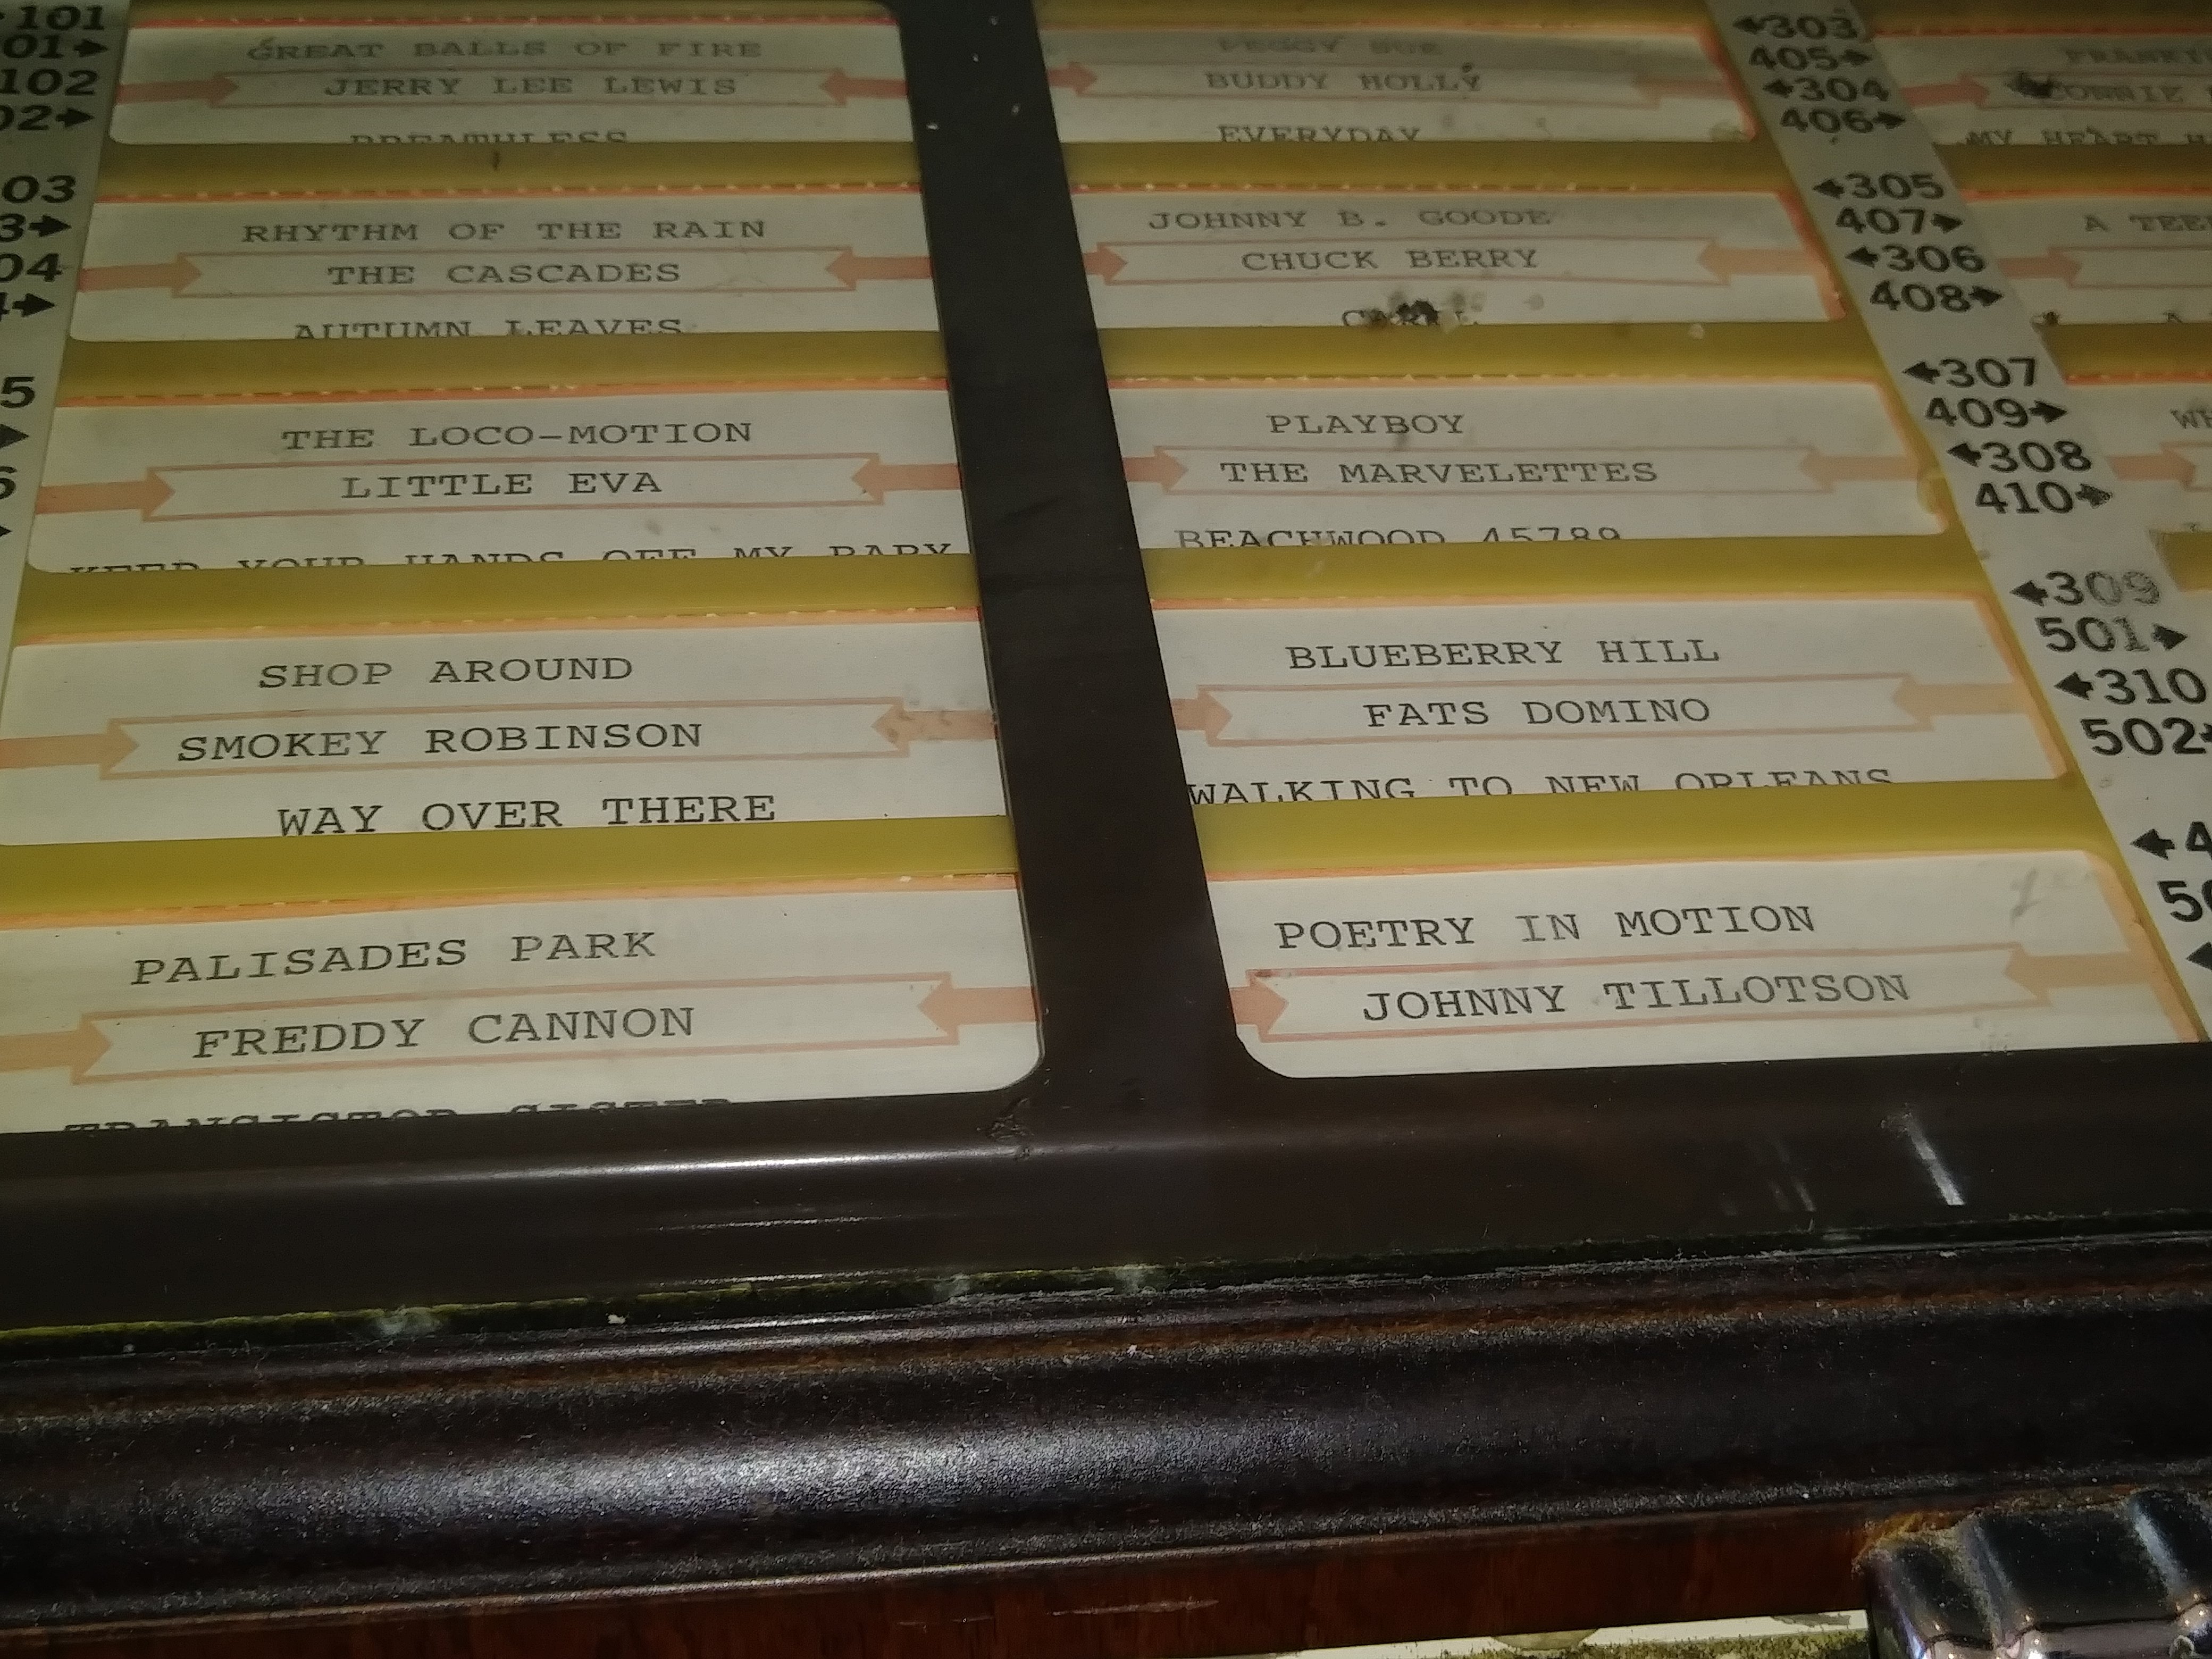 101
GREAT BALLS OF FIRE
JERRY LEE LEWIS
BREATHLESS
102
RHYTHM OF THE RAIN
THE CASCADES
AUTUMN LEAVES
03
04
THE LOCO-MOTION
LITTLE EVA
KEEP YOUR HANDS OFF MY BABY
SHOP AROUND
SMOKEY ROBINSON
WAY OVER THERE
PALISADES PARK
FREDDY CANNON
TRANSISTOR SISTER
PEGGY SUE
BUDDY HOLLY
EVERYDAY
JOHNNY B. GOODE
CHUCK BERRY
PLAYBOY
THE MARVELETTES
BEACHWOOD 45789
BLUEBERRY HILL
FATS DOMINO
WALKING TO NEW ORLEANS
POETRY IN MOTION
JOHNNY TILLOTSON
303
405
304
406
305
407
306
408
307
409
308
410
309
501
310
502
CONNIE
MY HEART
A